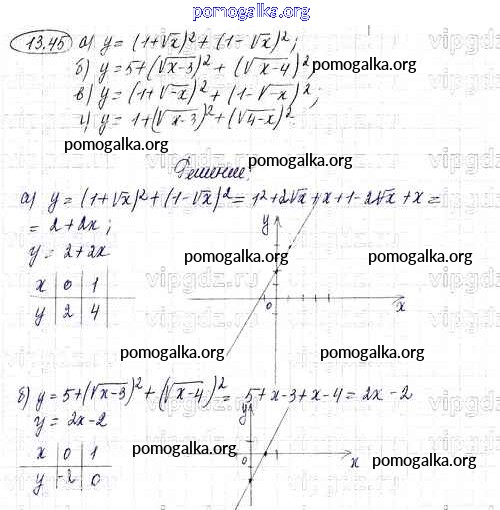 pomogalka.org
13.45 а) y = (1+√x)² + (1-√x)²;
б) y = 5+(√x-3)² + (√x-4)²;
pomogalka.org
в) y = (1+√-x)² + (1-√-x)²;
pomogalka.org
г) y = 1+(√x-3)² + (√4-x)².
Решение:
pomogalka.org
а) y = (1+√x)² + (1-√x)² = 1²+2√x+x+1-2√x+x =
= 2+2x; y
y = 2+2x
pomogalka.org pomogalka.org
x 0 1
y 2 4
0 x
pomogalka.org pomogalka.org
б) y = 5+(√x-3)² + (√x-4)² = 5+x-3+x-4 = 2x-2
y = 2x-2 y
pomogalka.org
x 0 1
0 x pomogalka.org
y -2 0
pomogalka.org